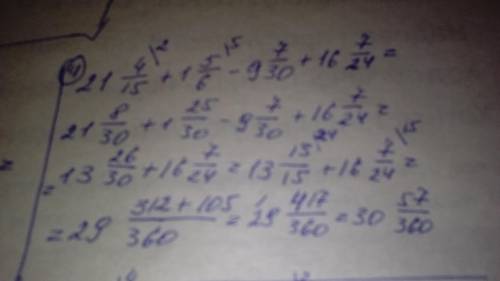 4) 21 4/15 + 1 5/6 - 9 7/30 + 16 7/24 =
21 8/30 + 1 25/30 - 9 7/30 + 16 7/24 =
= 13 26/30 + 16 7/24 = 13 13/15 + 16 7/24 =
= 29 (312 + 105)/360 = 29 417/360 = 30 57/360